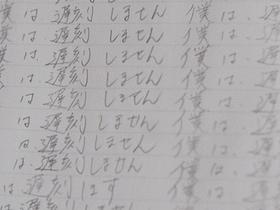 僕は 遅刻 しません 僕は 遅
僕は 遅刻 しません 僕は 遅
僕は 遅刻 しません 僕は 遅
僕は 遅刻 しません 僕は 遅
は 遅刻 しません 僕は 遅
は 遅刻 しません 僕は 遅
は 遅刻 しません 僕は 遅
は 遅刻 しません 僕は
は 遅刻 します 僕は